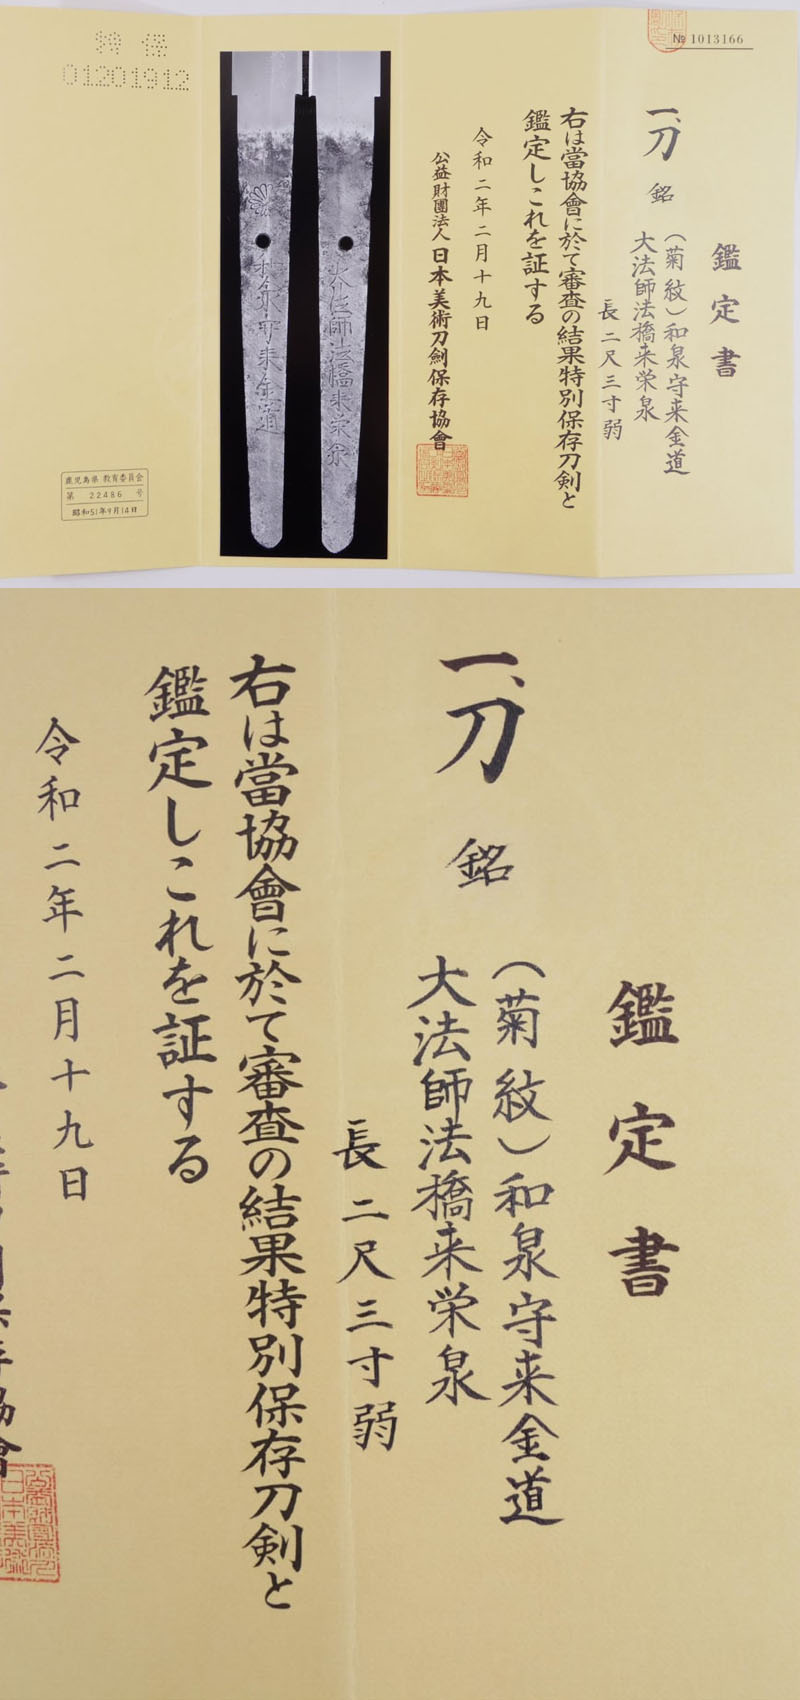 № 1013166
鑑定書
一、刀 銘
(菊紋)和泉守来金道
大法師法橋来栄泉
長二尺三寸弱
右は當協會に於て審査の結果特別保存刀剣と
鑑定しこれを証する
令和二年二月十九日
公益財團法人日本美術刀劍保存協會
大法師法橋来栄泉
和泉守来金道
特保
01201912
鹿児島県教育委員会
第 22486 号
昭和51年9月14日
鑑定書
一、刀 銘
(菊紋)和泉守来金道
大法師法橋来栄泉
長二尺三寸弱
右は當協會に於て審査の結果特別保存刀剣と
鑑定しこれを証する
令和二年二月十九日